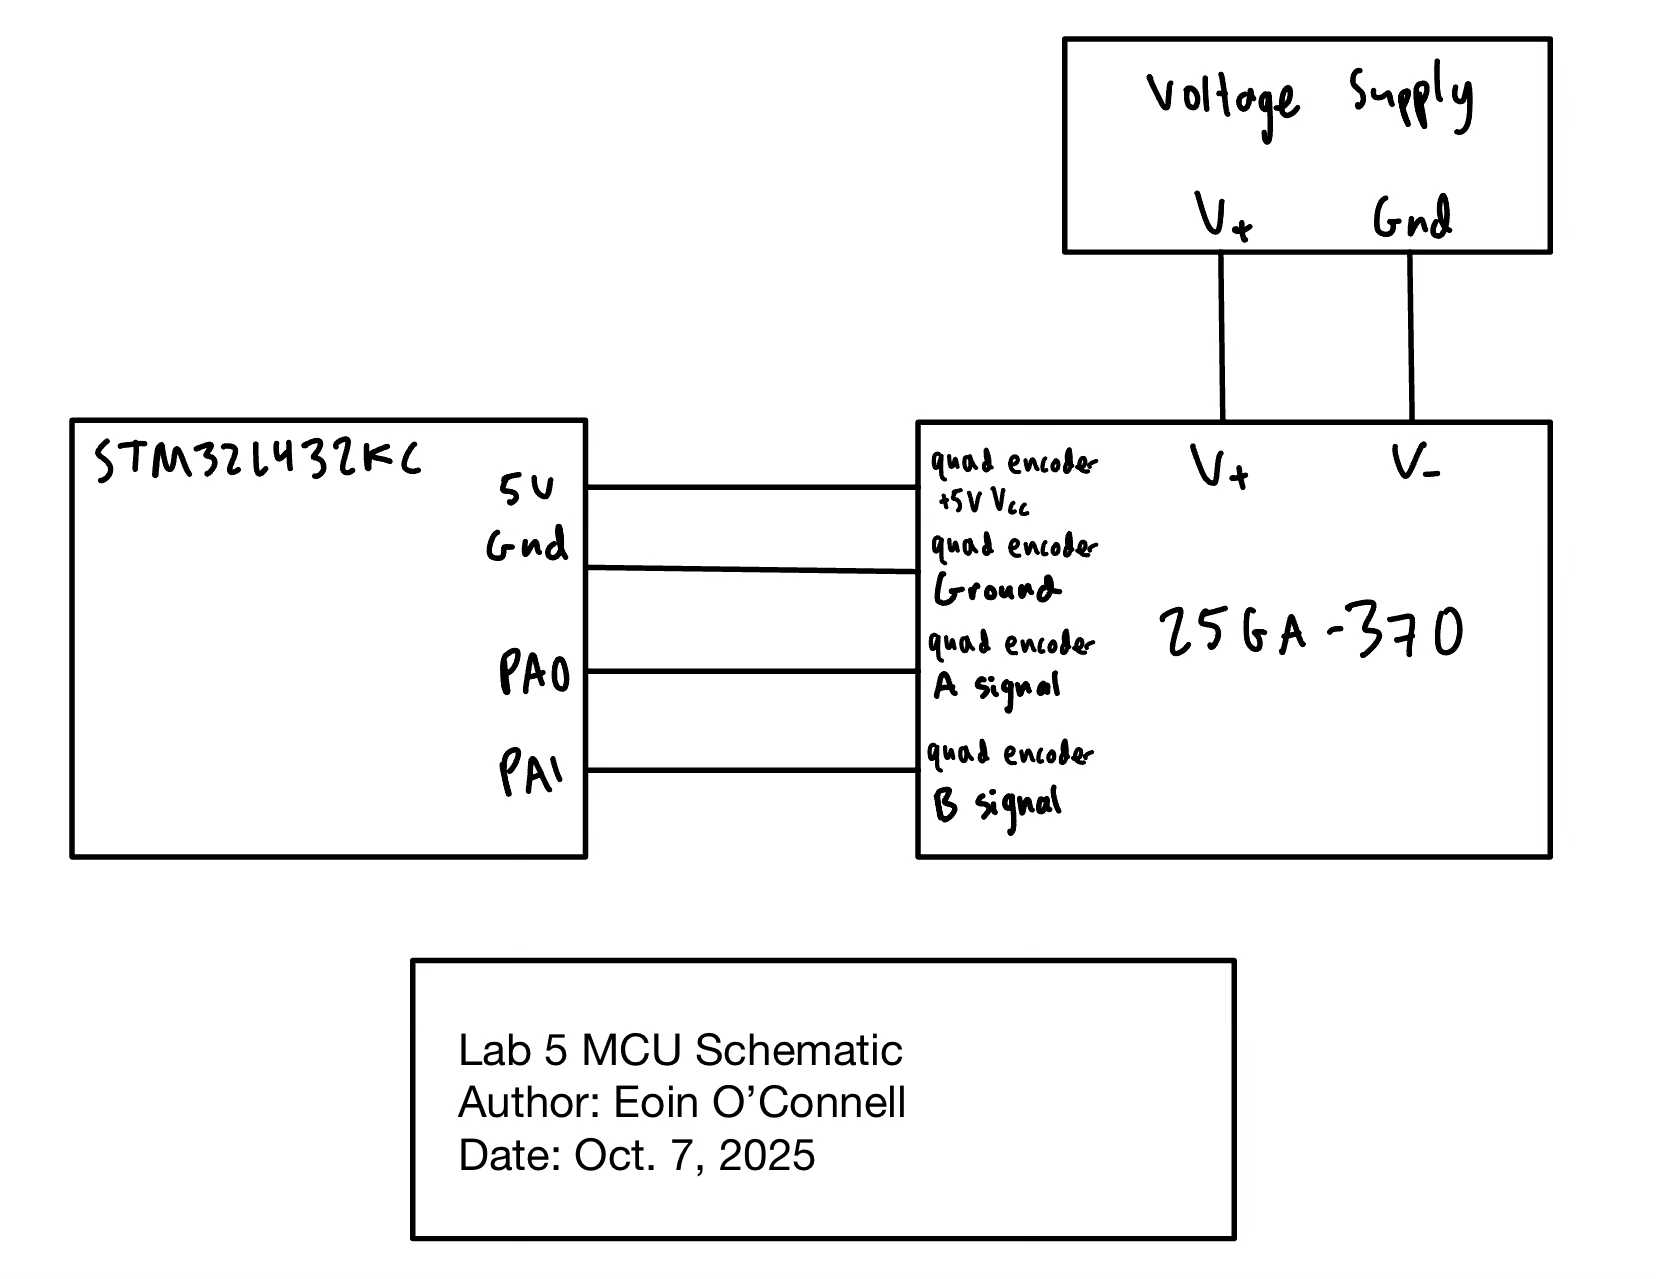 Voltage Supply
V+ Gnd
STM32L432KC
5V
Gnd
PA0
PA1
quad encoder
+5V Vcc
quad encoder
Ground
quad encoder
A signal
quad encoder
B signal
V+ V-
25GA-370
Lab 5 MCU Schematic
Author: Eoin O’Connell
Date: Oct. 7, 2025